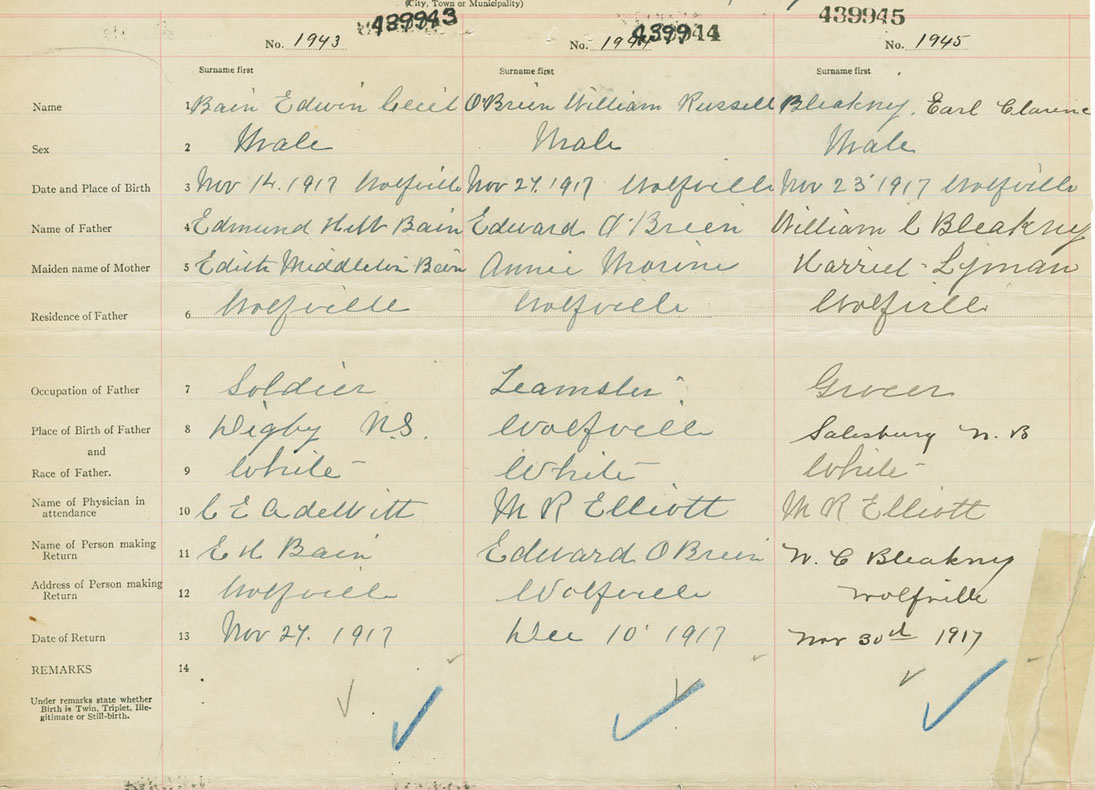 (City, Town or Municipality)
439943 439944 439945
No. 1943 No. 1944 No. 1945
Surname first Surname first Surname first
Name 1 Bain Edwin Cecil O'Brien William Russell Bleakny, Earl Clarence
Sex 2 Male Male Male
Date and Place of Birth 3 Nov 14. 1917 Wolfville Nov 27. 1917 Wolfville Nov 23 1917 Wolfville
Name of Father 4 Edmund Bain Edward O'Brien William C Bleakny
Maiden name of Mother 5 Edith Middleton Bain Annie Harriet Lyman
Residence of Father 6 Wolfville Wolfville Wolfville
Occupation of Father 7 Soldier Teamster Grocer
Place of Birth of Father 8 Digby N.S. Wolfville Salesbury N. B
and
Race of Father. 9 White White White
Name of Physician in
attendance 10 C E A deWitt M R Elliott M R Elliott
Name of Person making
Return 11 E H Bain Edward O Brien W. C Bleakny
Address of Person making
Return 12 Wolfville Wolfville Wolfville
Date of Return 13 Nov 27. 1917 Dec 10 1917 Nov 30th 1917
REMARKS 14
Under remarks state whether
Birth is Twin, Triplet, Ille-
gitimate or Still-birth.